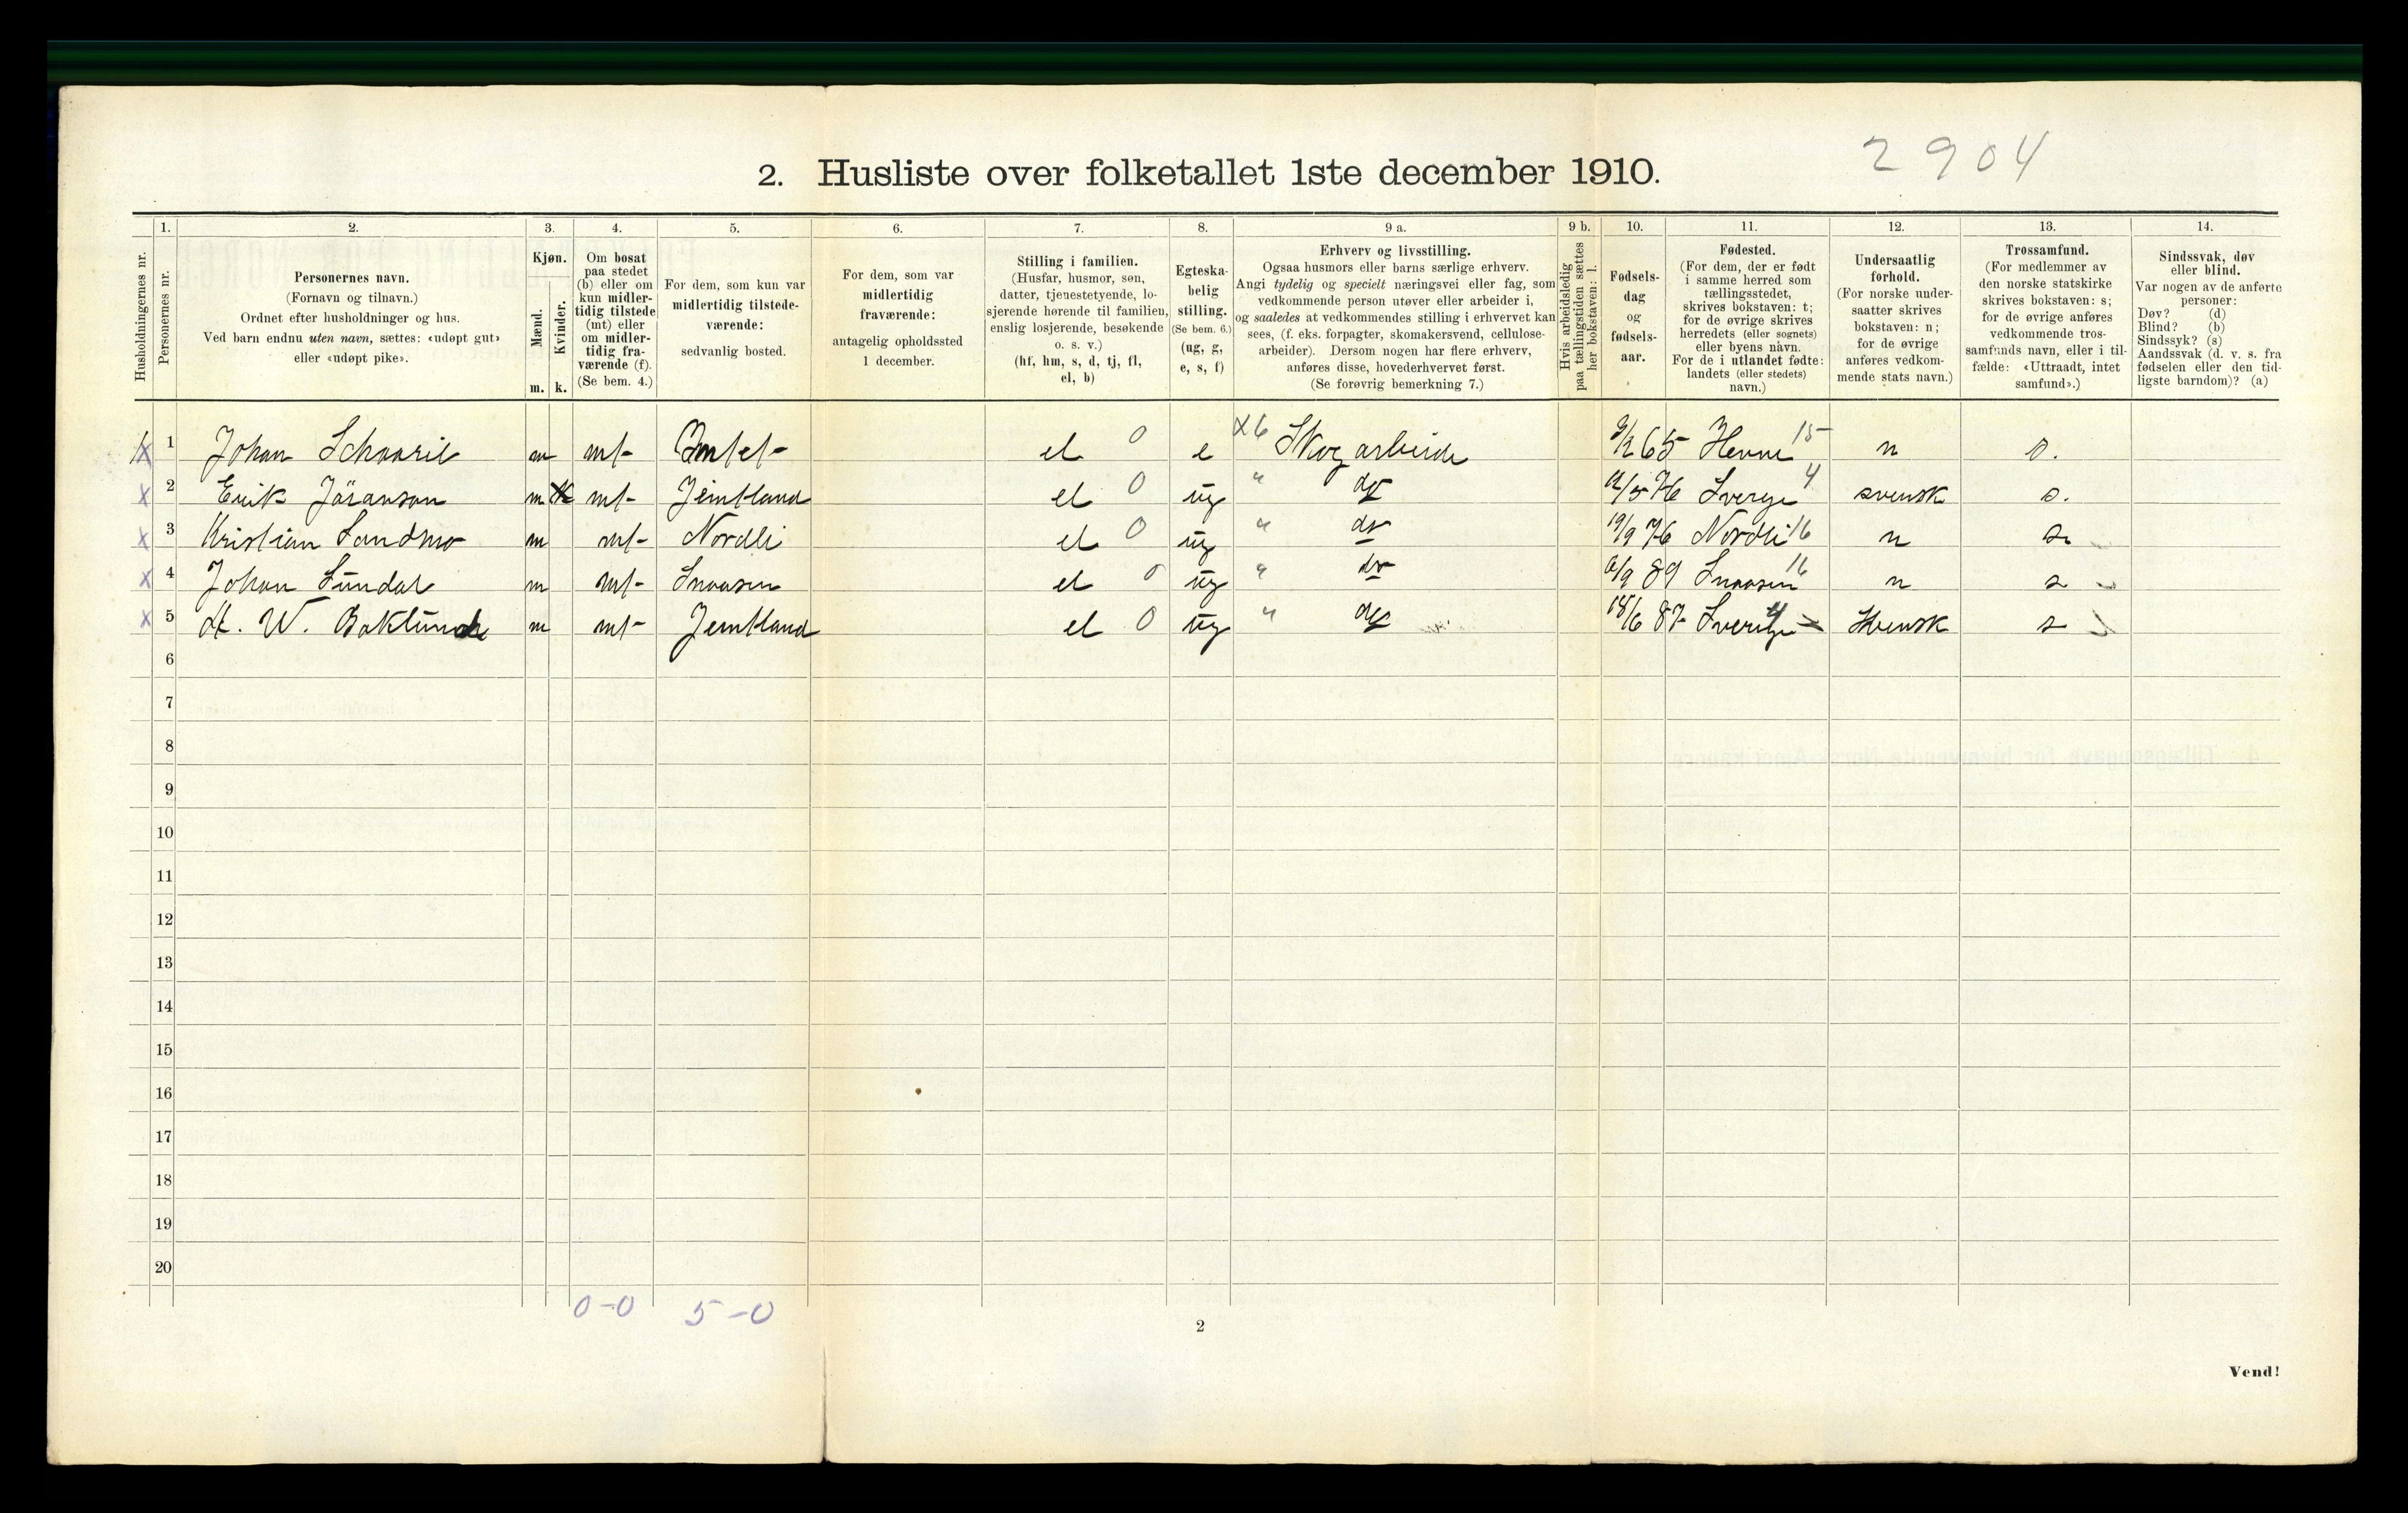 2904
2. Husliste over folketallet 1ste december 1910.
Husholdningernes nr.
1.
Personernes nr.
2.
Personernes navn.
(Fornavn og tilnavn.)
Ordnet efter husholdninger og hus.
Ved barn endnu uten navn, sættes: «udøpt gut»
eller «udøpt pike».
3.
Kjøn.
Mænd.
Kvinder.
m. k.
4.
Om bosat
paa stedet
(b) eller om
kun midler-
tidig tilstede
(mt) eller
om midler-
tidig fra-
værende (f).
(Se bem. 4.)
5.
For dem, som kun var
midlertidig tilstede-
værende:
sedvanlig bosted.
6.
For dem, som var
midlertidig
fraværende:
antagelig opholdssted
1 december.
7.
Stilling i familien.
(Husfar, husmor, søn,
datter, tjenestetyende, lo-
sjerende hørende til familien,
enslig losjerende, besøkende
o. s. v.)
(hf, hm, s, d, tj, fl,
el, b)
8.
Egteska-
belig
stilling.
(Se bem. 6.)
(ug, g,
e, s, f)
9 a.
Erhverv og livsstilling.
Ogsaa husmors eller barns særlige erhverv.
Angi tydelig og specielt næringsvei eller fag, som
vedkommende person utøver eller arbeider i,
og saaledes at vedkommendes stilling i erhvervet kan
sees, (f. eks. forpagter, skomakersvend, cellulose-
arbeider). Dersom nogen har flere erhverv,
anføres disse, hovederhvervet først.
(Se forøvrig bemerkning 7.)
9 b.
Hvis arbeidsledig
paa tællingstiden sættes
her bokstaven: l.
10.
Fødsels-
dag
og
fødsels-
aar.
11.
Fødested.
(For dem, der er født
i samme herred som
tællingsstedet,
skrives bokstaven: t;
for de øvrige skrives
herredets (eller sognets)
eller byens navn.
For de i utlandet fødte:
landets (eller stedets)
navn.)
12.
Undersaatlig
forhold.
(For norske under-
saatter skrives
bokstaven: n;
for de øvrige
anføres vedkom-
mende stats navn.)
13.
Trossamfund.
(For medlemmer av
den norske statskirke
skrives bokstaven: s;
for de øvrige anføres
vedkommende tros-
samfunds navn, eller i til-
fælde: «Uttraadt, intet
samfund».)
14.
Sindssvak, døv
eller blind.
Var nogen av de anførte
personer:
Døv? (d)
Blind? (b)
Sindssyk? (s)
Aandssvak (d. v. s. fra
fødselen eller den tid-
ligste barndom)? (a)
x 1 Johan m mt- el 0 e Skogarbeide 65 Hevne 15 n s.
x 2 Erik Jöranson m mt- Jemtland el 0 ug " do 76 Sverge 4 svensk s.
x 3 Kristian Sandmo m mt- Nordli el 0 ug " do 19/9 76 Nordli 16 n s
x 4 Johan Sundal m mt- Snaasen el 0 ug " do 6/9 89 Snaasen 16 n s
x 5 H. W. Baklund m mt- Jemtland el 0 ug " do 18/6 87 Sverige 4 svensk s
6
7
8
9
10
11
12
13
14
15
16
17
18
19
20
0-0 5-0
2
Vend!